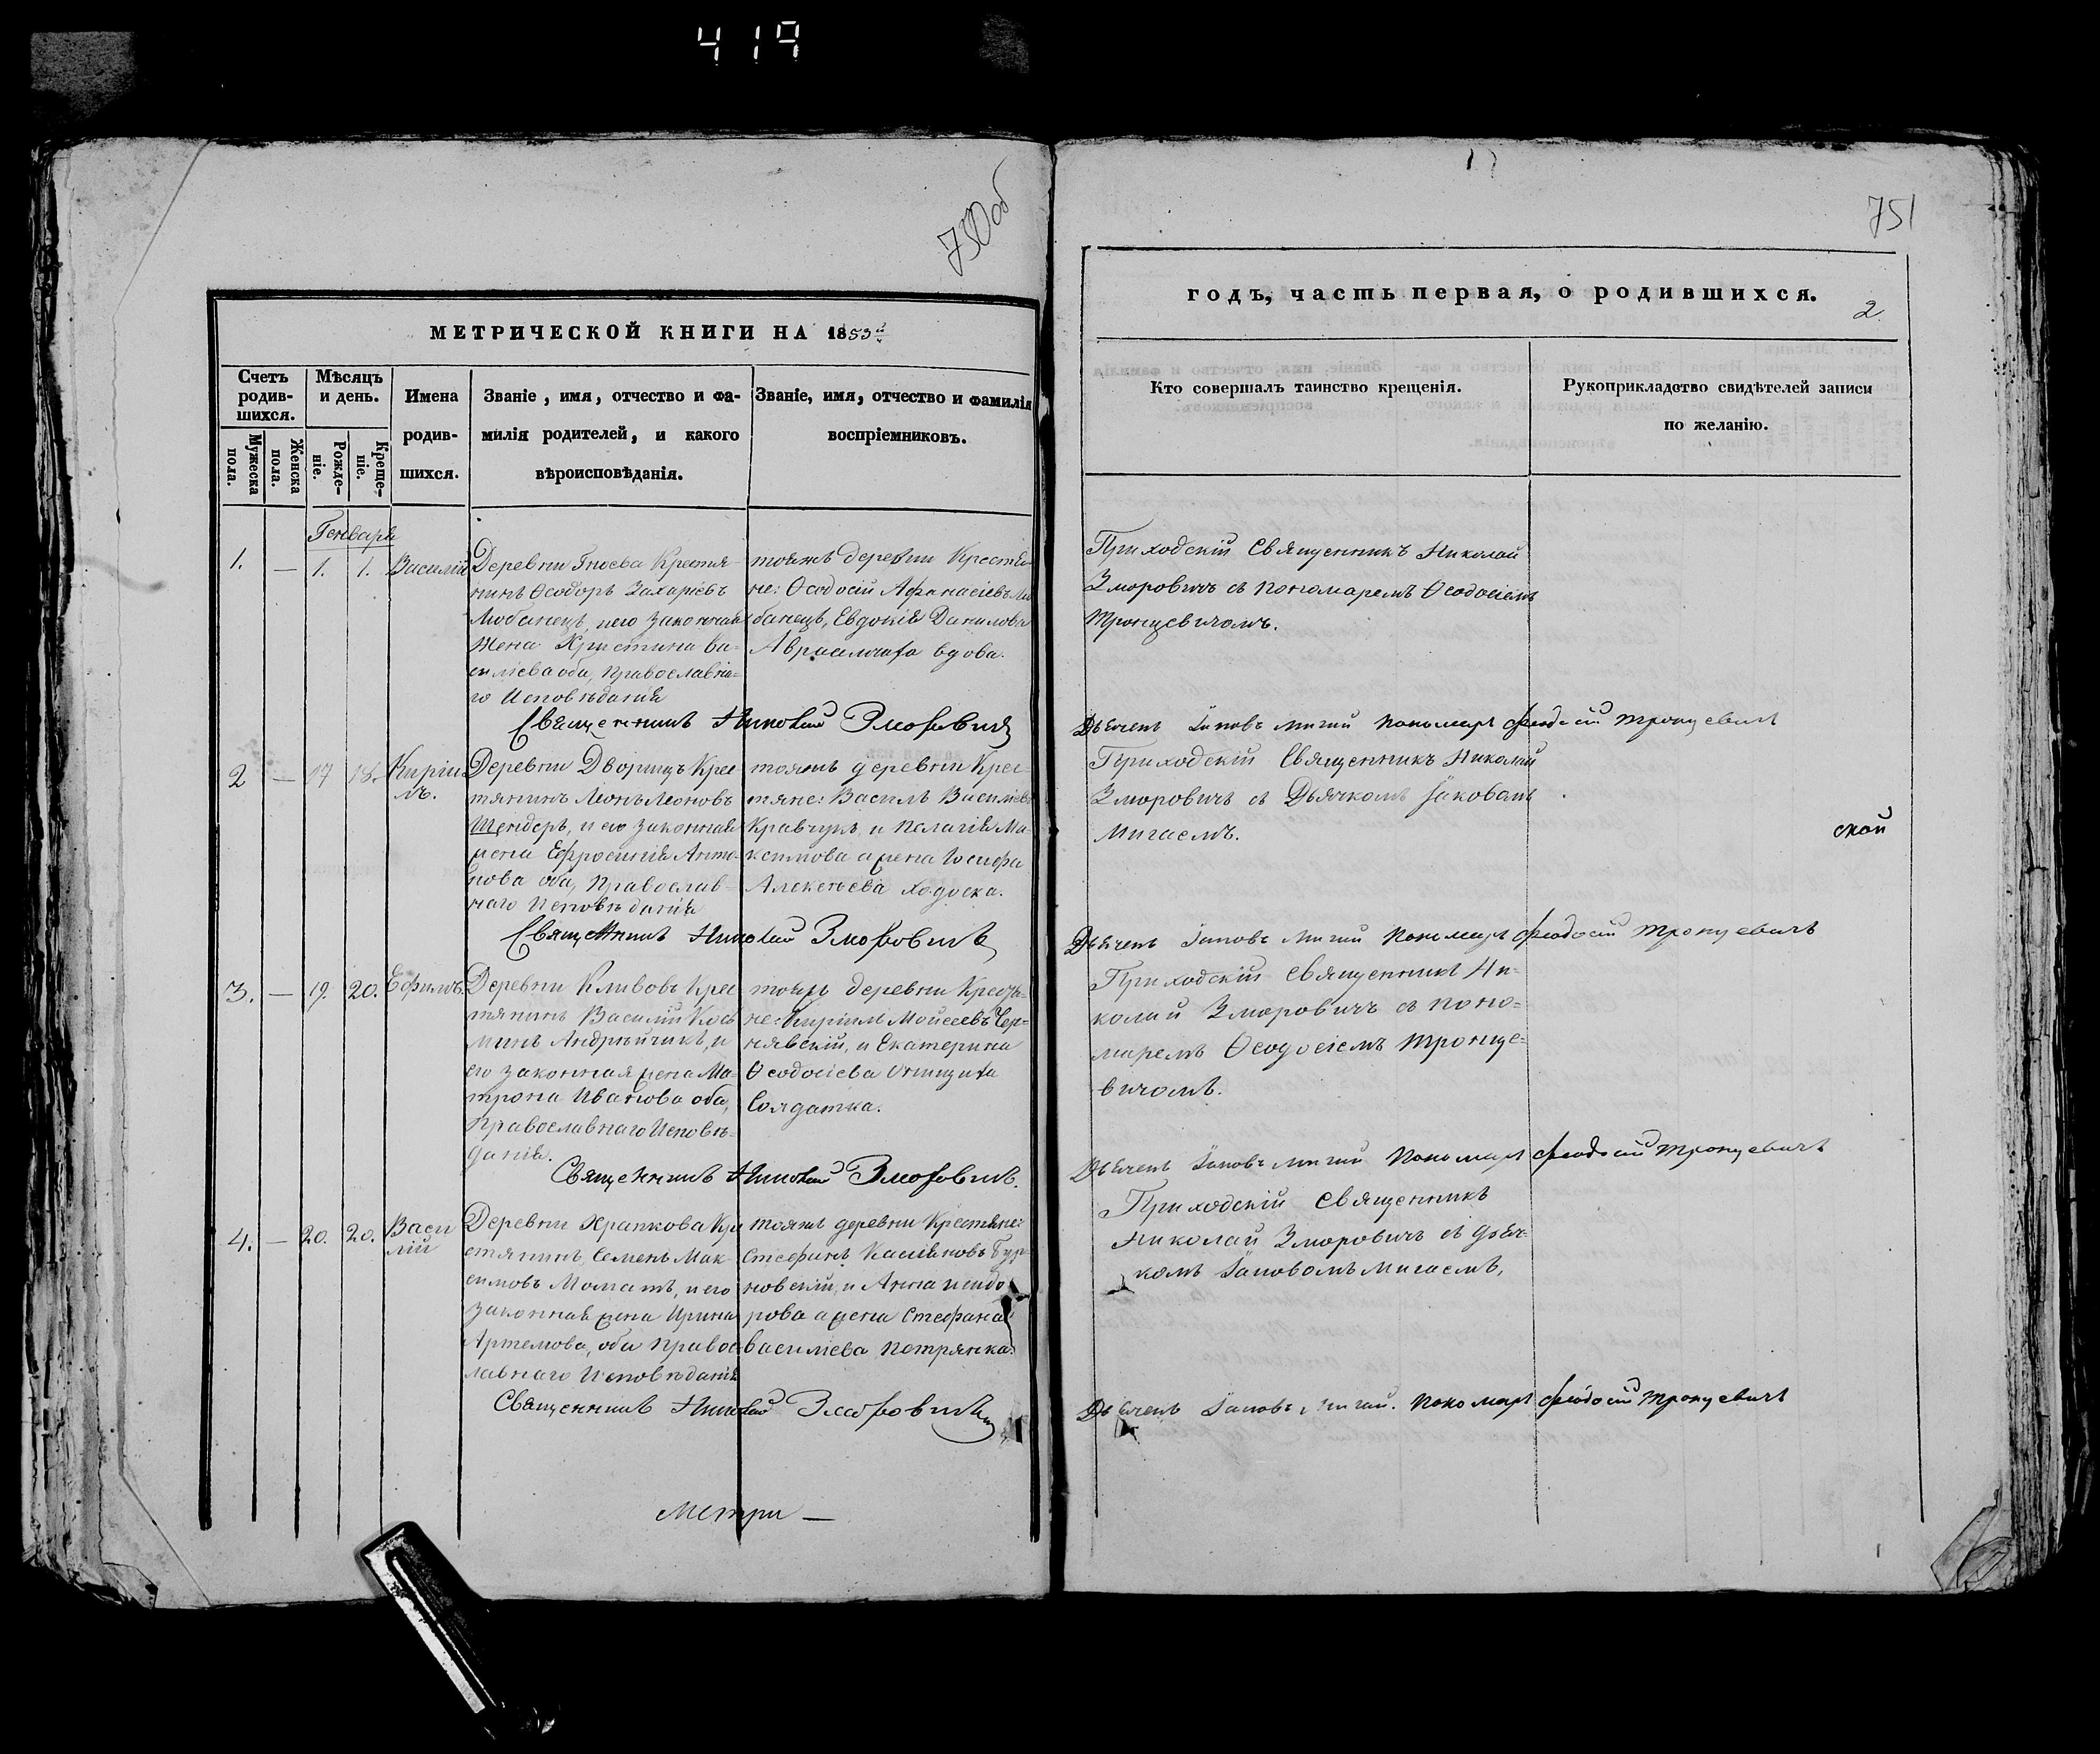 419
750об
МЕТРИЧЕСКОЙ КНИГИ НА 1853й
Счетъ родив-шихся.
Мѣсяцъ и день.
Имена родив-шихся.
Званіе, имя, отчество и фа-
милія родителей, и какого
вѣроисповѣданія.
Званіе, имя, отчество и фамилія
воспріемниковъ.
Мужеска пола.
Женска пола.
Рожде-ніе.
Креще-ніе.
Генваря
1. — 1. 1. Василій
Деревни Гнева Крестья-
нинъ Ѳеодоръ Захаріевъ
Любанецъ, иего Законная
Жена Христина Ва-
силіева оба, Православна-
го Исповѣданія
тояжъ деревни Крестья-
не: Ѳеодосій Афанасіевъ Лю
банецъ, Евдокія Данилова
вдова.
Священникъ Николай Зморовичъ
2 — 17 18. Кирил
лъ.
Деревни Дворищъ Крес-
тянинъ Леонъ Леоновъ
Шендеръ, и его Законная
жена Ефросинія Анто-
нова оба, Православ-
наго Исповѣданія
тояжъ деревни Крес-
тяне: Василь Василіевъ
Кравчукъ, и Пелагія Ма-
ксимова а жена Іосифа
Алексѣева Ходоска.
Священникъ Николай Зморовичъ
3. — 19. 20. Ефимъ.
Деревни Кливовъ Крес
тянинъ Василій Кось
минъ Андрѣйчикъ, и
его законная жена Ма-
трона Иванова оба,
Православнаго Исповѣ-
данія.
тояжъ деревни Крестя-
не: Кирилъ Мойсеевъ Чер-
нявскій, и Екатерина
Ѳеодосіева
Солдатка.
Священникъ Николай Зморовичъ.
4. — 20. 20. Васи
лій
Деревни Храпкова Кре
стянинъ Семенъ Мак-
симовъ Моматъ, и его
законная жена Ирина
Артемова, оба Правос-
лавнаго Исповѣданія
тояжъ деревни Крестяне:
Стефанъ Касіяновъ Бур-
новскій, и Анна Исидо
рова а жена Стефана
Василіева Петрянка.
Священникъ Николай Зморовичъ
Метри —
751
годъ, часть первая, о родившихся.
2
Кто совершалъ таинство крещенія.
Рукоприкладство свидѣтелей записи
по желанію.
Приходскій Священникъ Николай
Зморовичъ съ Пономаремъ Ѳеодосіемъ
Тронцевичомъ.
Дьячекъ Іаковъ Мигай Пономарь Феодосій Тронцевичъ
Приходскій Священникъ Николай
Зморовичъ съ Дьячкомъ Іаковомъ
Мигаемъ.
ской
Дьячекъ Іаковъ Мигай Пономарь Феодосій Тронцевичъ
Приходскій Священникъ Ни-
колай Зморовичъ съ поно-
маремъ Ѳеодосіемъ Тронце-
вичомъ.
Дьячекъ Іаковъ Мигай Пономарь Феодосій Тронцевичъ
Приходскій Священникъ
Николай Зморовичъ съ дьяч-
комъ Іаковомъ Мигаемъ,
Дьячекъ Іаковъ Мигай. Пономарь Феодосій Тронцевичъ